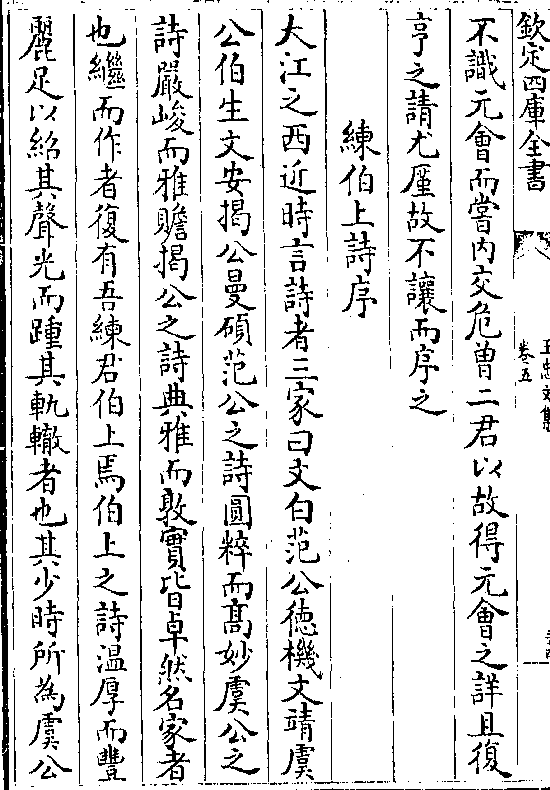 欽定四庫全書
卷五
不識元會而嘗内交危曾二君以故得元會之詳且復
亨之請尤厪故不讓而序之
練伯上詩序
大江之西近時言詩者三家曰文白范公徳機文靖虞
公伯生文安掲公曼碩范公之詩圓粹而髙妙虞公之
詩嚴峻而雅贍掲公之詩典雅而敦實皆卓然名家者
也繼而作者復有吾練君伯上焉伯上之詩温厚而豐
麗足以紹其聲光而踵其軌轍者也其少時所為虞公